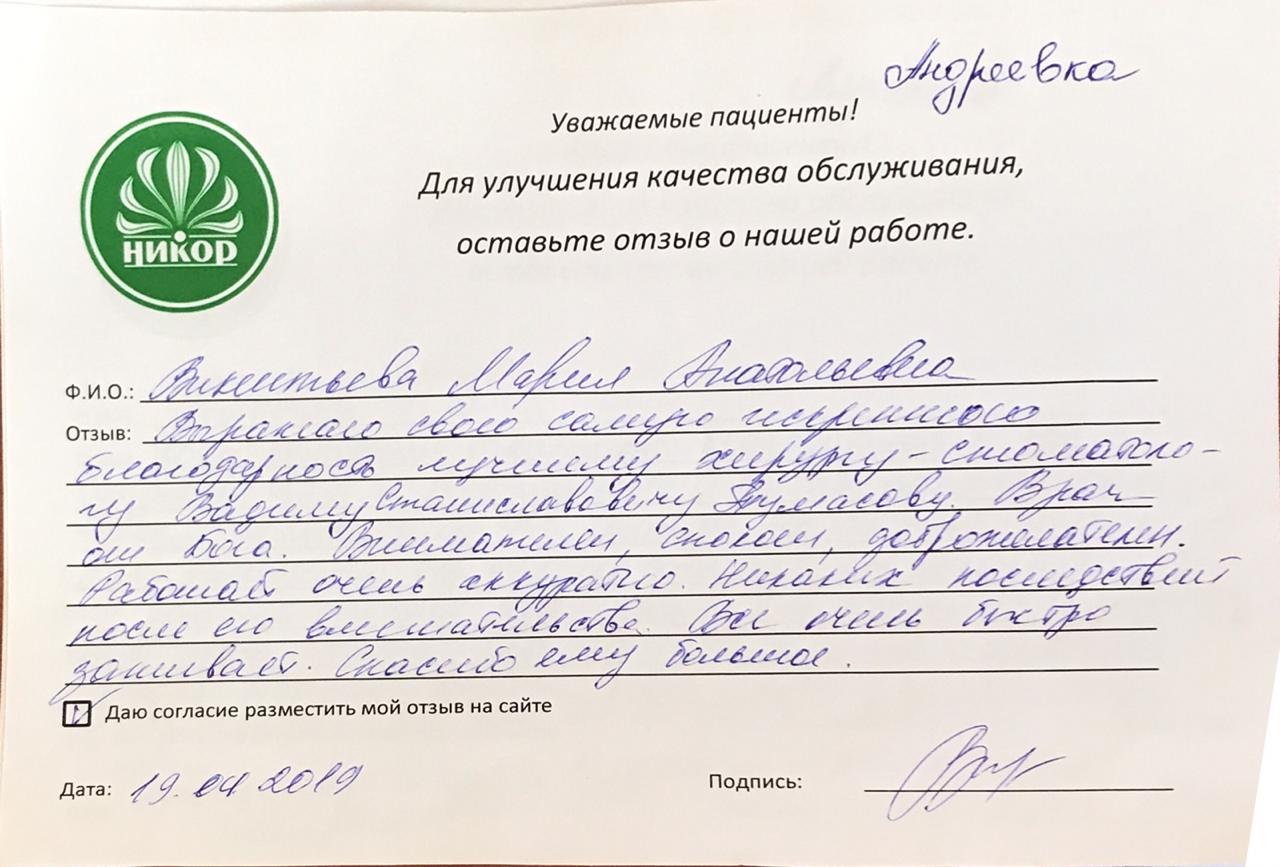 Андреевка
Уважаемые пациенты!
Для улучшения качества обслуживания,
оставьте отзыв о нашей работе.
НИКОР
Ф.И.О.: Викентьева Мария Анатольевна
Отзыв: Выражаю свою самую искреннюю
благодарность лучшему хирургу-стоматоло-
гу Вадиму Станиславовичу Тумасову. Врач
от Бога. Внимателен, спокоен, доброжелателен.
Работает очень аккуратно. Никаких последствий
после его вмешательства. Все очень быстро
заживает. Спасибо ему большое.
Даю согласие разместить мой отзыв на сайте
Дата: 19.04 2019 Подпись: